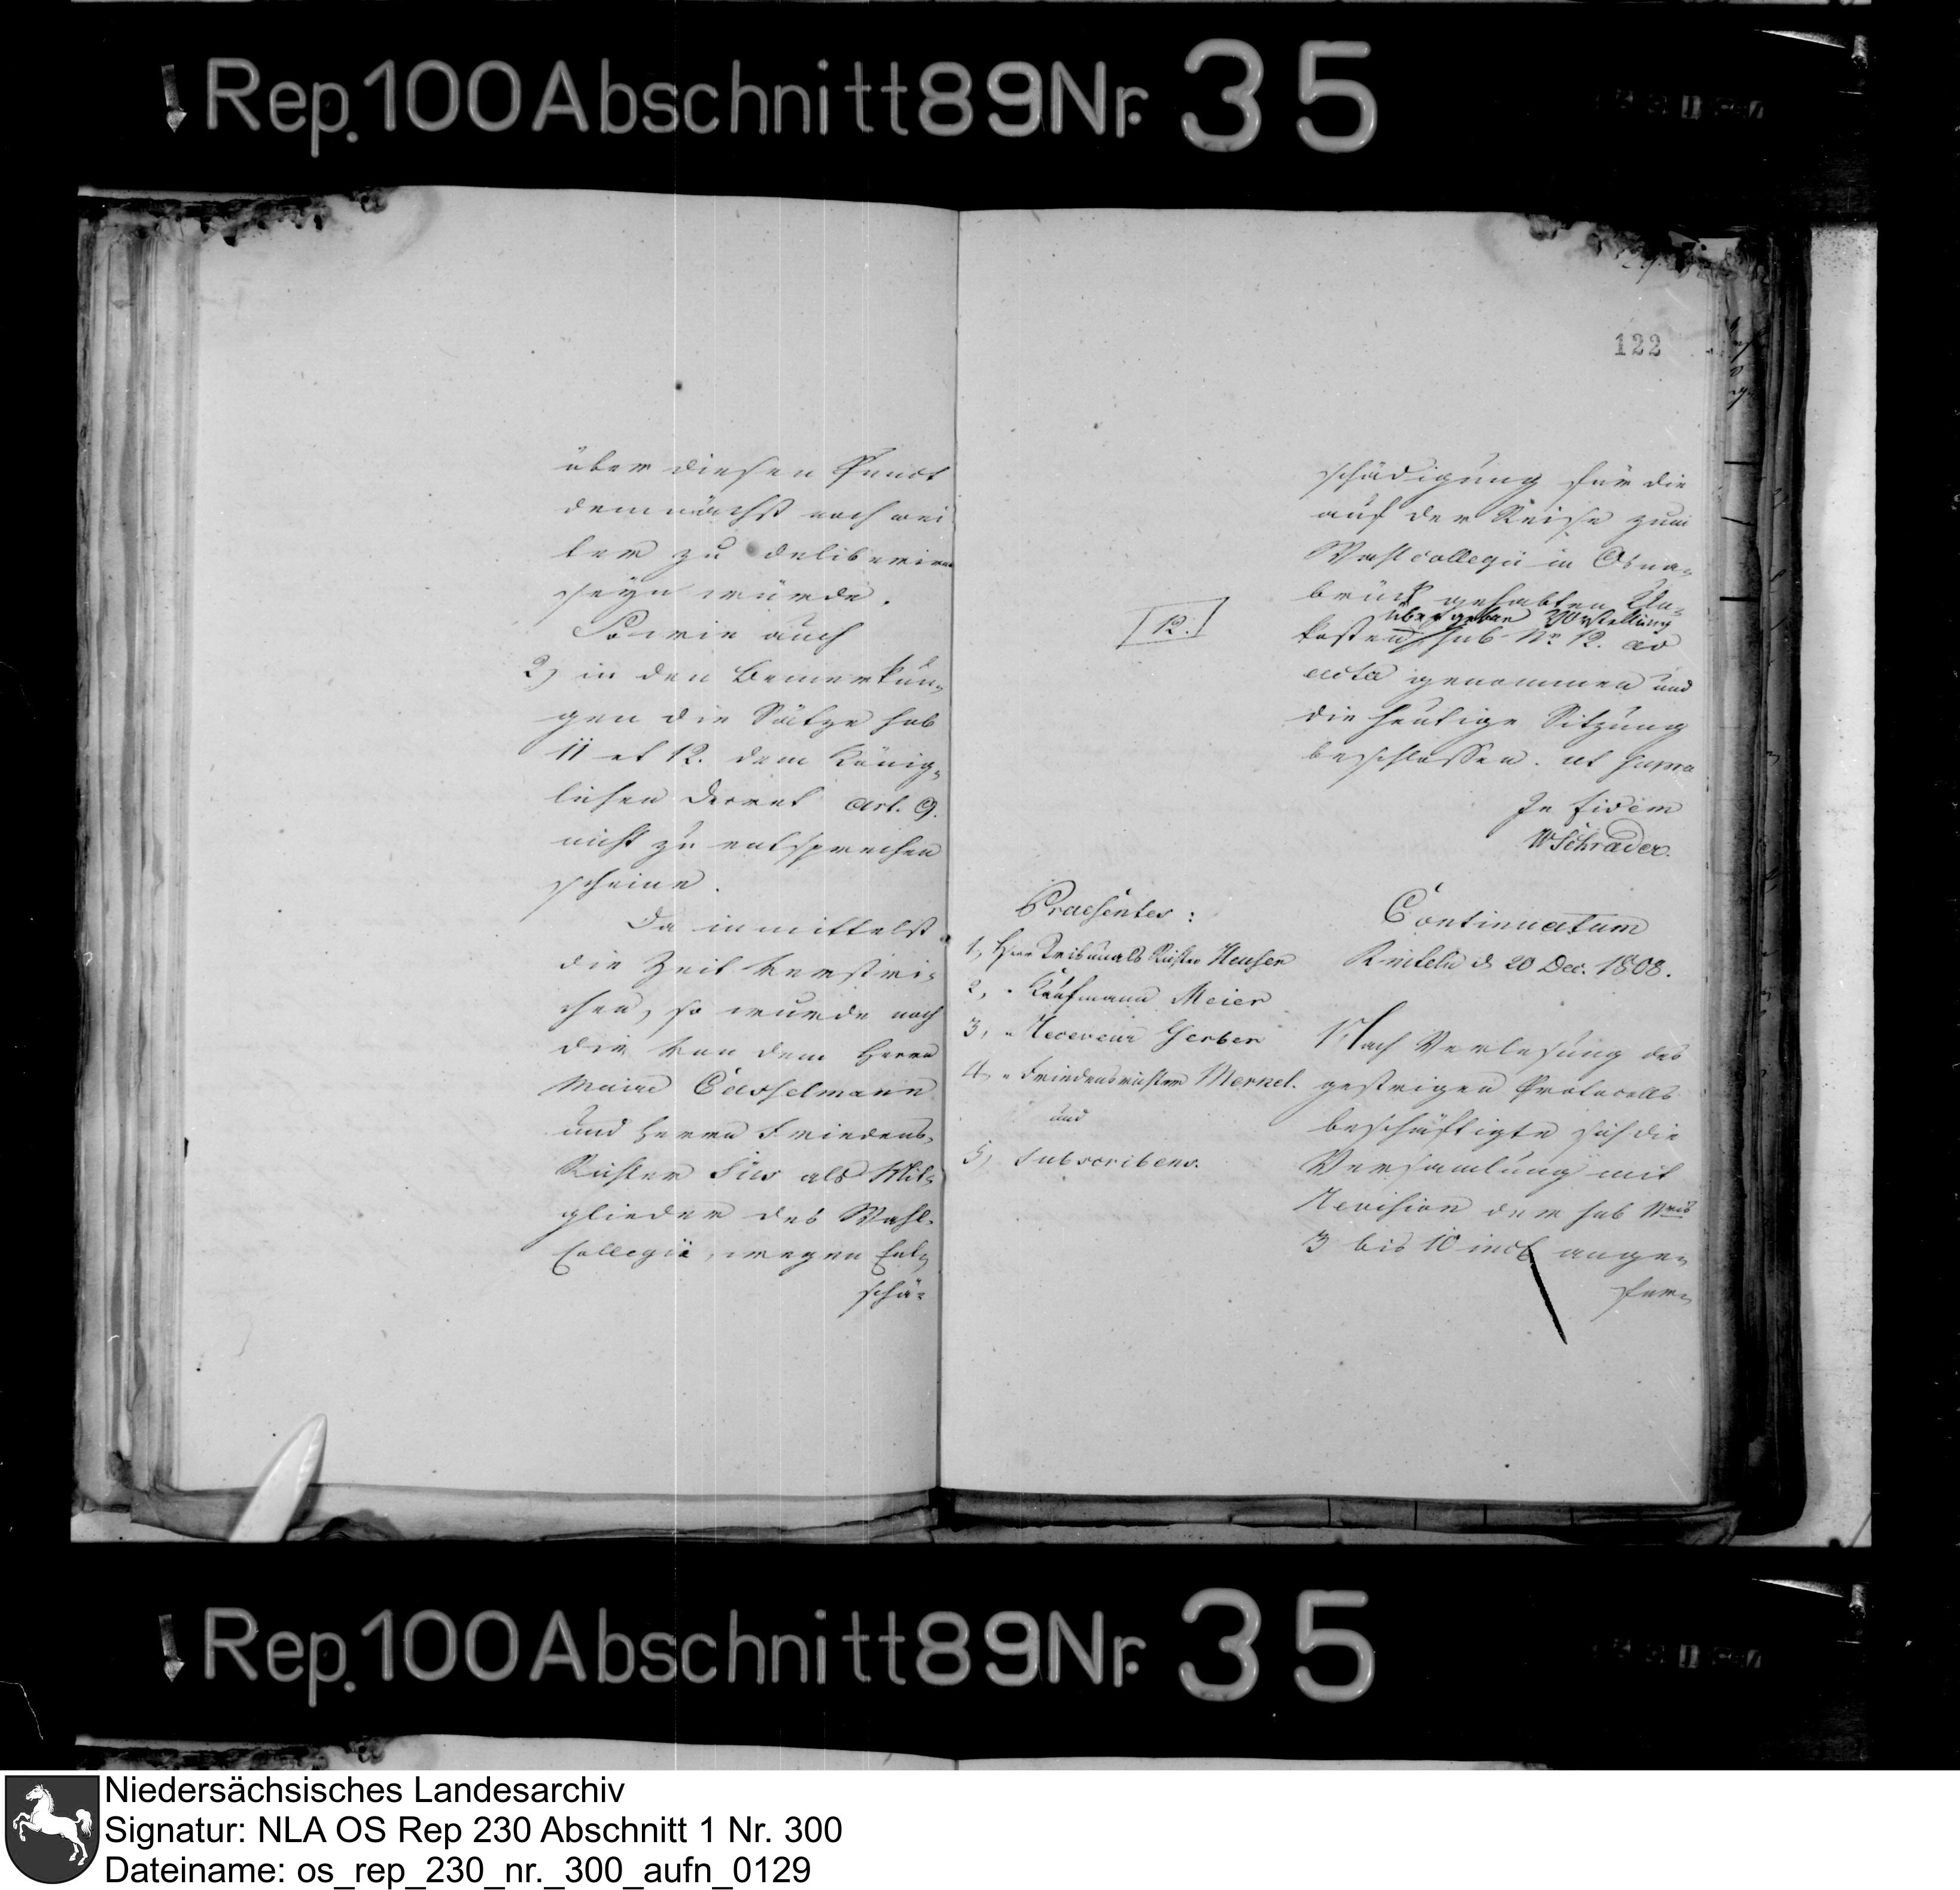 Rep.100Abschnitt89Nr. 35
über diesen Punct
demnächst noch wei
ter zu deliberiren
seyn würde.
So wie auch
2) in den Bemerkun-
gen die Sätze sub
11 et 12. dem König-
lichen Decret Art. 9.
nicht zu entsprechen
scheine.
Da inmittelst
die Zeit verstri-
chen, so wurde noch
die von dem Herrn
Maire Casselmann
und Herrn Friedens-
Richter als Mit-
glieder des Wahl-
Collegii, wegen Ent-
schä-
122
schädigung für die
auf der Reise zum
Wahlcollegii in Osna-
brück gehabten Un-
übergebene Vorstellung
kosten sub Nr. 12. ad
acta genommen und
die heutige Sitzung
beschlossen. ut supra
In fidem
WSchrader.
12.
Praesentes:
1, Herr Tribunals Richter Heuser
2, " Kaufmann Meier
3, " Receveur Gerber
4, " Friedensrichter Merkel.
und
5, Subscribens.
Continuatum
Rinteln d 20 Dec. 1808.
Nach Verlesung des
gestrigen Protocolls
beschäftigte sich die
Versamlung mit
Revision der sub Nris
3 bis 10 incl ange-
Rep.100Abschnitt89Nr. 35
Niedersächsisches Landesarchiv
Signatur: NLA OS Rep 230 Abschnitt 1 Nr. 300
Dateiname: os_rep_230_nr._300_aufn_0129